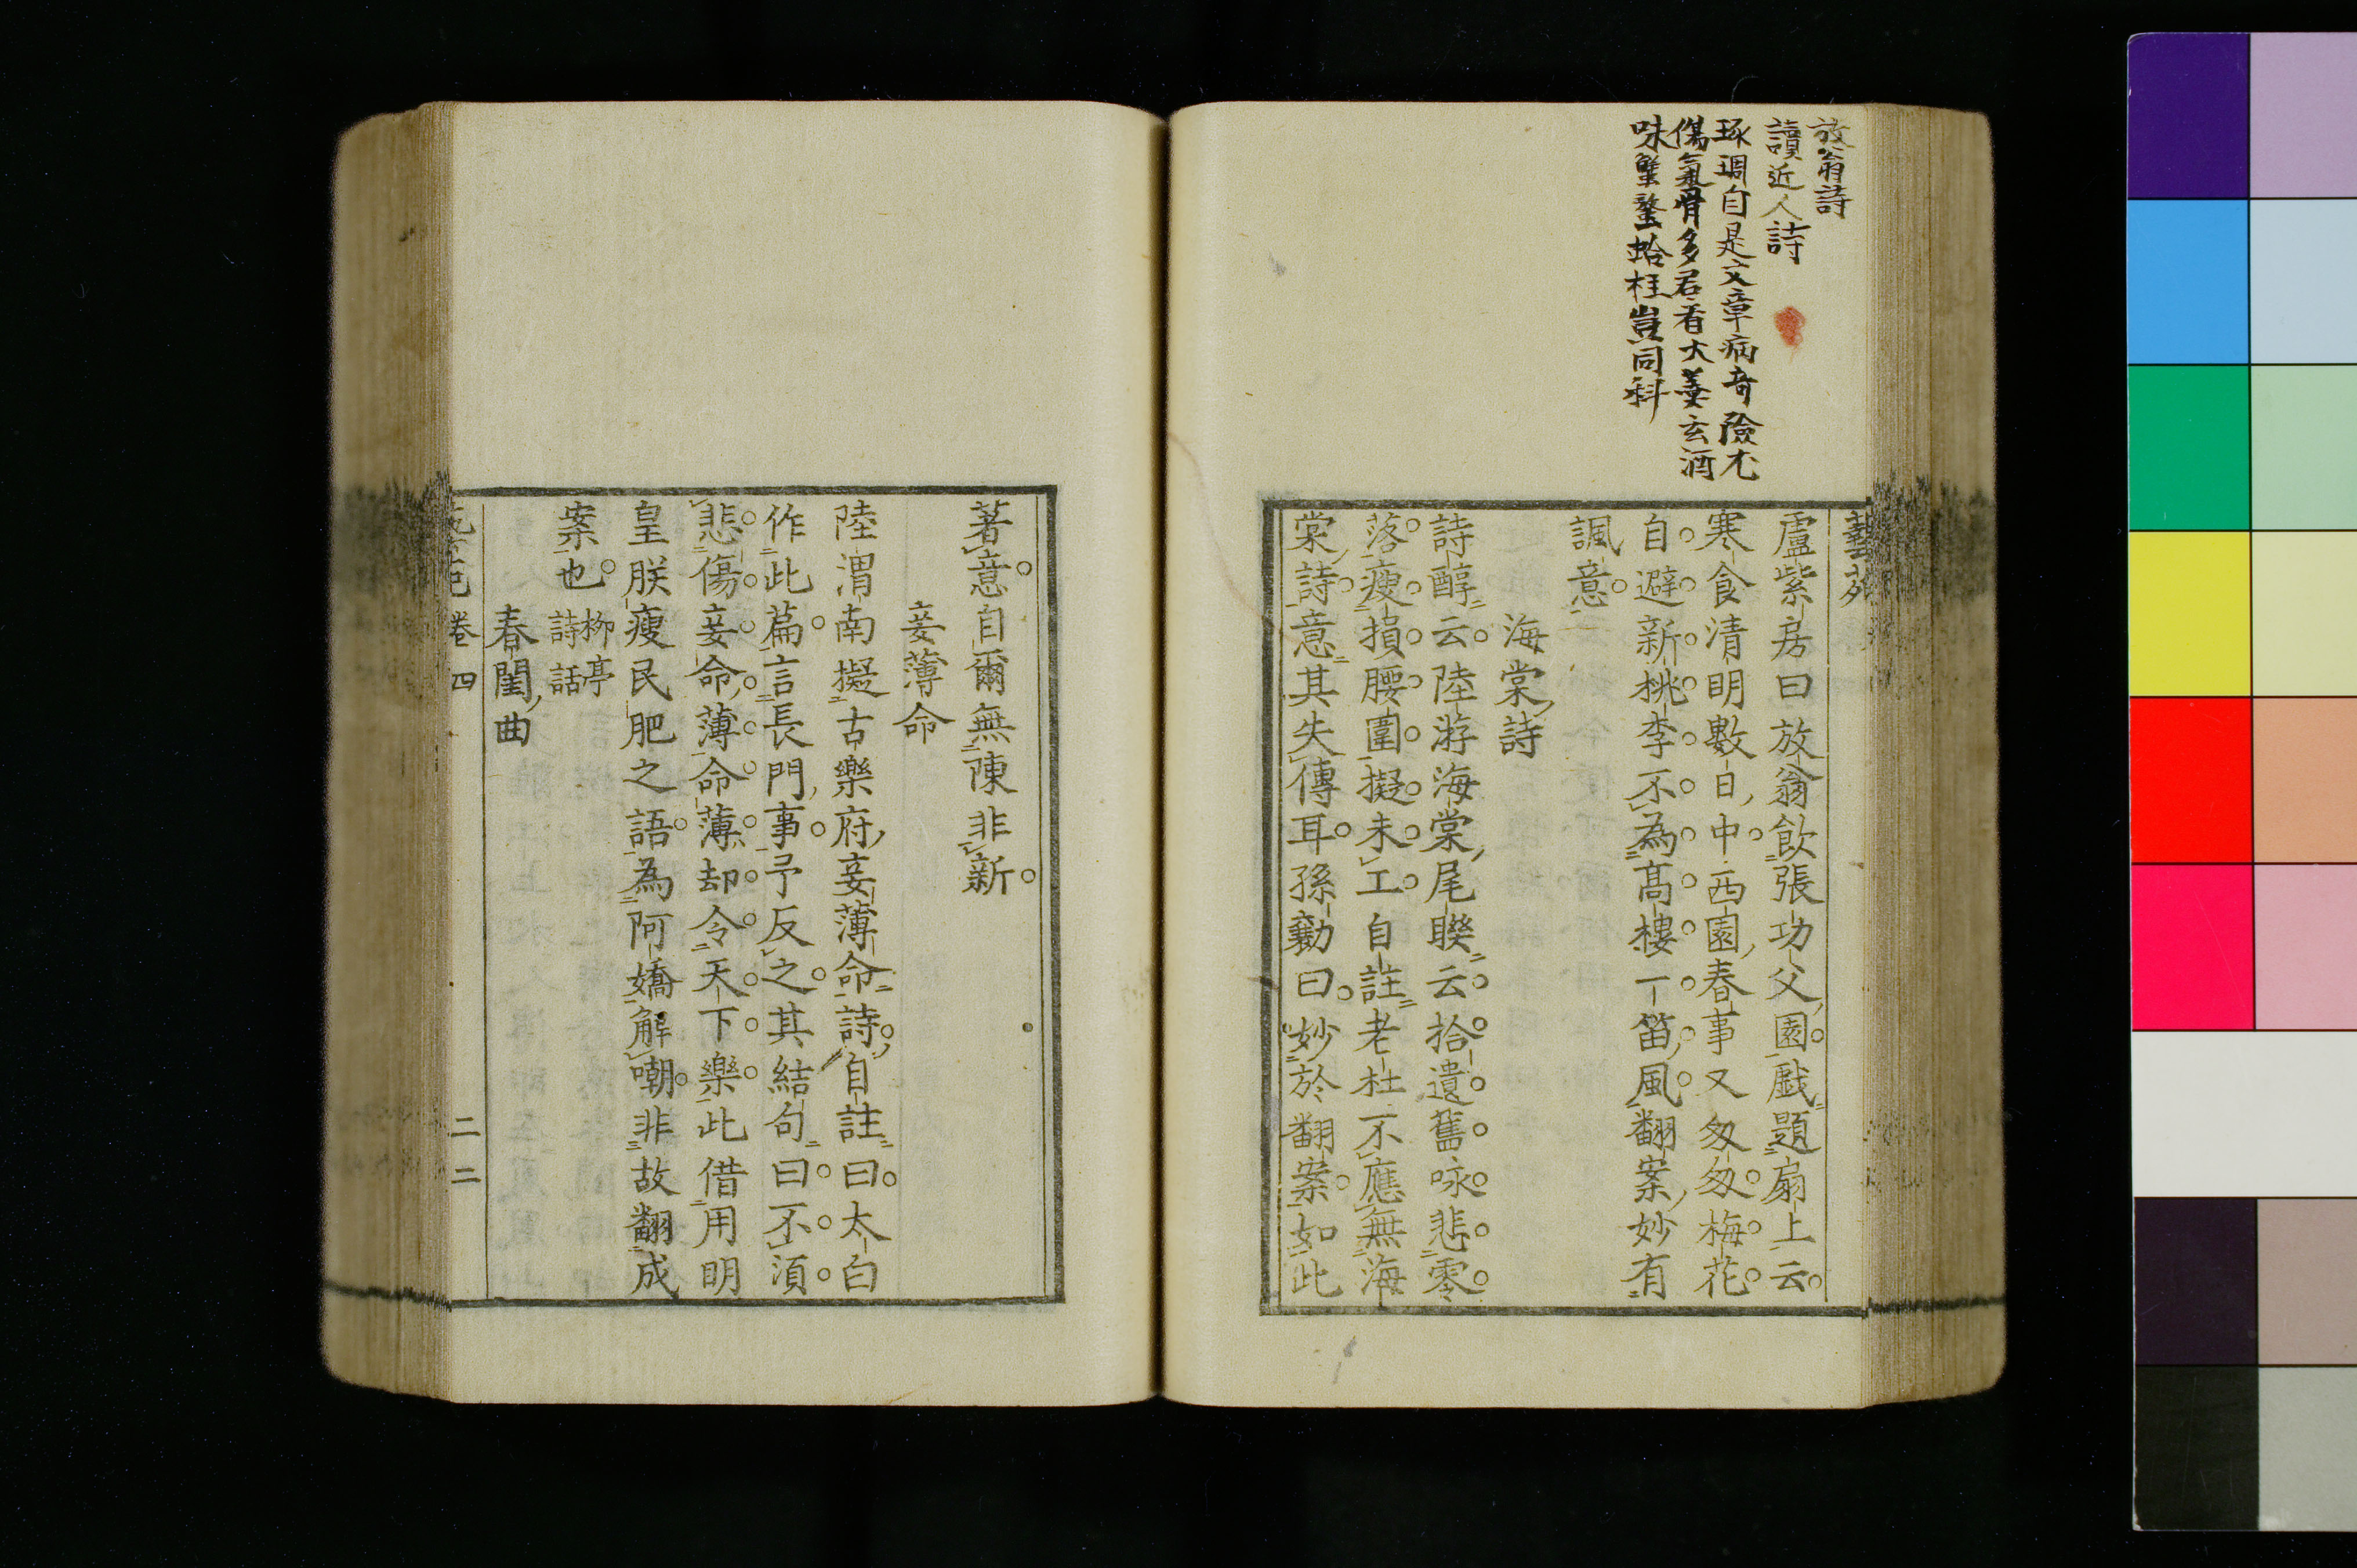 放翁詩
讀近人詩
琢琱自是文章病奇險尤
傷氣骨多君看大羹玄酒
味蟹螯蛤柱豈同科
藝苑
盧紫房曰放翁飲張功父園戲題扇上云
寒食清明數日中西園春事又匆匆梅花
自避新桃李不為高樓一笛風翻案妙有
諷意
海棠詩
詩醇云陸游海棠尾聯云拾遺舊咏悲零
落瘦損腰圍擬未工自註老杜不應無海
棠詩意其失傳耳孫勷曰妙於翻案如此
著意自爾無陳非新
妾薄命
陸渭南擬古樂府妾薄命詩自註曰太白
作此篇言長門事予反之其結句曰不須
悲傷妾命薄命薄却令天下樂此借用明
皇朕瘦民肥之語為阿嬌解嘲非故翻成
案也柳亭詩話
春閨曲
卷四 二二